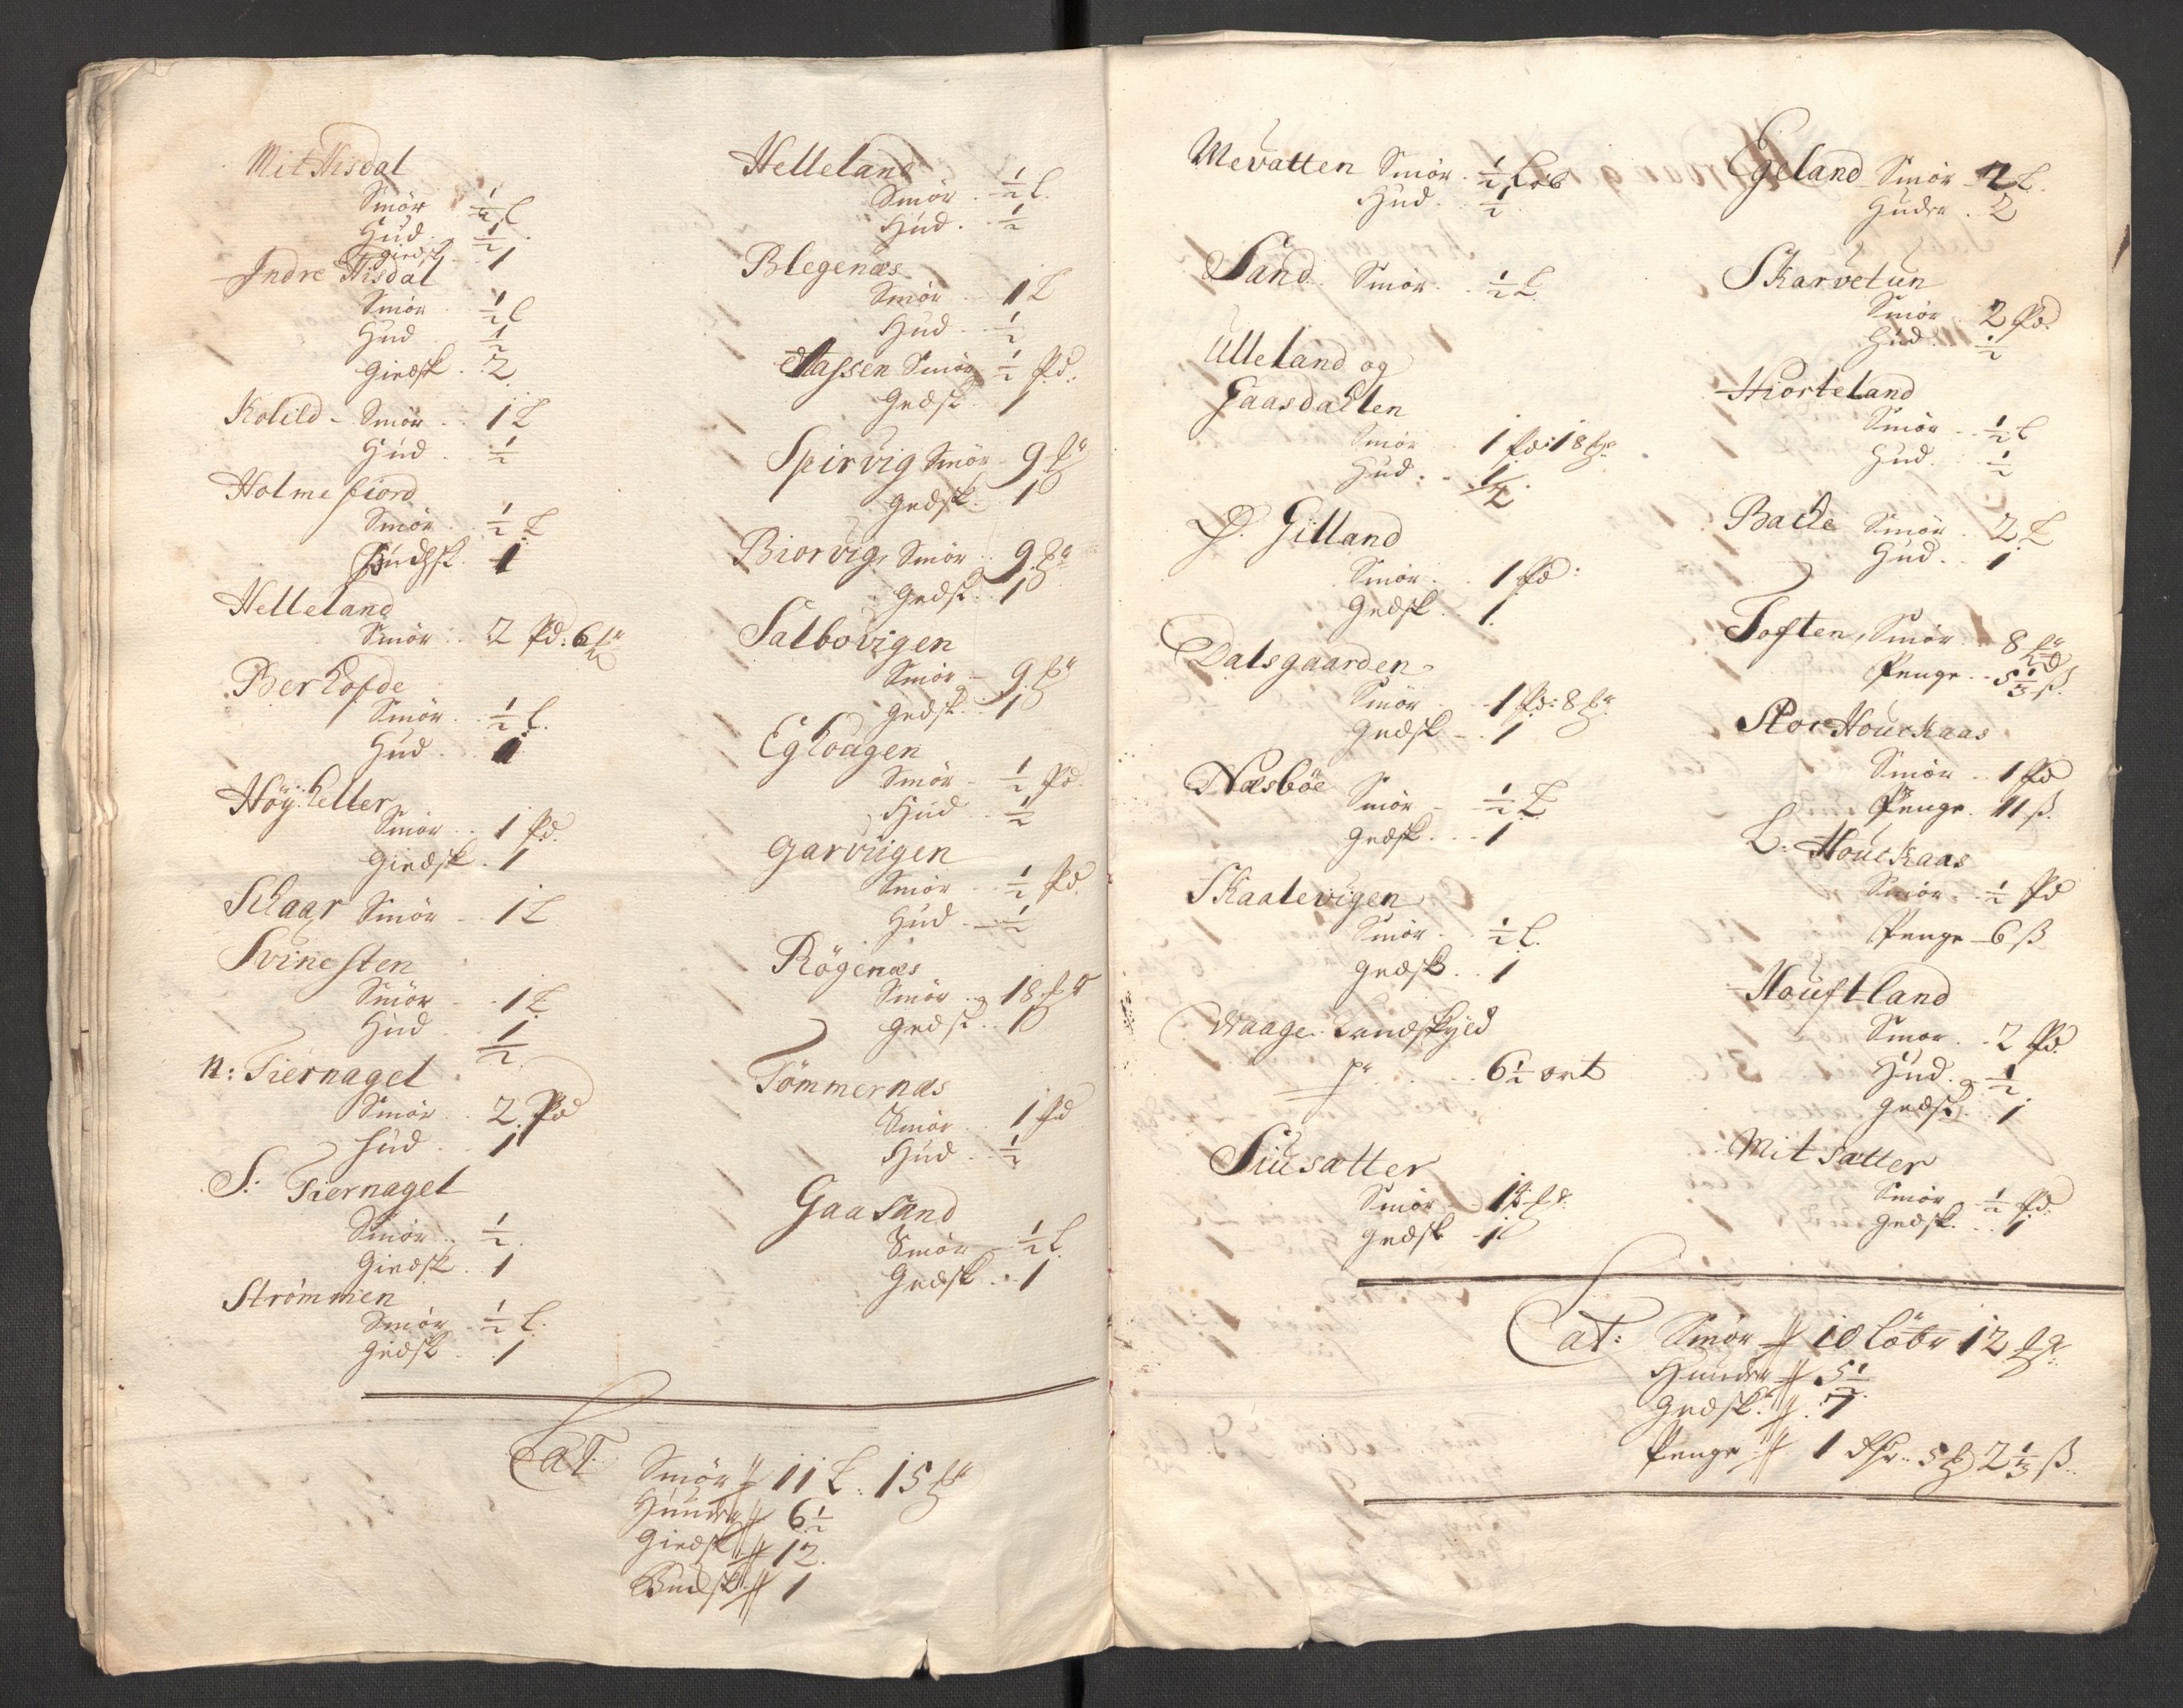 Mit Hisdal
Smör ½ L
Hud ½
Giedsk 1
Indre Hisdal
Smör ½ L
Hud ½
Giedsk. 2
Kolild - Smör .. 1 L
Hud .. ½
Holmefiord
Smör .. ½ L
Budsk. 1
Helleland
Smör .. 2 Pd: 6 ℔r
Berhofde
Smör .. ½ L.
Hud . 1
Höy: heller
Smör .. 1 Pd.
Giedsk . 1
Schaar Smör .. 1 L
Svinesten
Smör .. 1 L
Hud ½
N: Tiernagel
Smör .. 2. Pd
Hud .. 1
S: Tiernagel
Smör .. ½.
Giedsk . 1
Strömmen
Smör .. ½ L.
Giedsk .. 1
Helleland
Smör . ½ L.
Hud . ½
Blegenæs
Smör .. 1 L
Hud .. ½
Stassen Smör ½ Pd:
Gedsk . 1
Spirvig Smör - 9 ℔r
Gedsk - 1
Biorvig, Smör .. 9. ℔r
Gedsk .. 1
Salbovigen
Smör - 9. ℔r
Gedsk .. 1
Eghougen
Smör - ½ Pd.
Hud .. ½
Garviigen
Smör .. ½ Pd.
Hud .. ½
Rögenæs
Smör .. 18 ℔r
Gedsk .. 1
Tömmernæs
Smör .. 1 Pd
Hud .. ½
Gaasand
Smör - ½ L.
Gedsk .. 1
Lat:
Smör // 11 L. 15 ℔r
Huuder // 6½
Giedsk // 12.
Budsk // 1
Mevatten Smör . ½ Løb
Hud . ½
Sand .. Smör .. ½ L.
Ulleland og
Gaasdallen
Smör .. 1 Pd: 18 ℔r
Hud .. ½
D. Gilland
Smör .. 1 Pd:
Gedsk . 1.
Dalsgaarden
Smör .. 1 Pd: 8 ℔r
Gedsk - 1
Næsböe Smör - ½ L
Gedsk .. 1
Skaalevigen
Smör .. ½ L.
Gedsk .. 1
Waage Landskyld
pr .. 6½ ort
Siusætter
Smör . 18 ℔r
Gedsk - 1
Egeland Smör - 2 L.
Huder . 2
Skarvetun
Smör . 2 Pd.
Hud . ½
Hiorteland
Smör .. ½ L
Hud. ½
Bacle Smör .. 2. L
Hud .. 1
Toften, Smör .. 8 ℔r
Penge .. 5⅓ ß.
Stoer Houckaas
Smör .. 1 Pd
Penge . 11 ß.
L: Houckaas
Smör .. ½ Pd
Penge - 6 ß
Houftland
Smör .. 2 Pd.
Hud . ½
Gedsk .. 1
Mit sætter
Smör . ½ Pd:
Gedsk .. 1
Lat: Smör // 10 Löber 12 ℔r
Huuder // 5½
Gedsk: // 7
Penge // 1 Dlr .. 5 2⅓ ß..